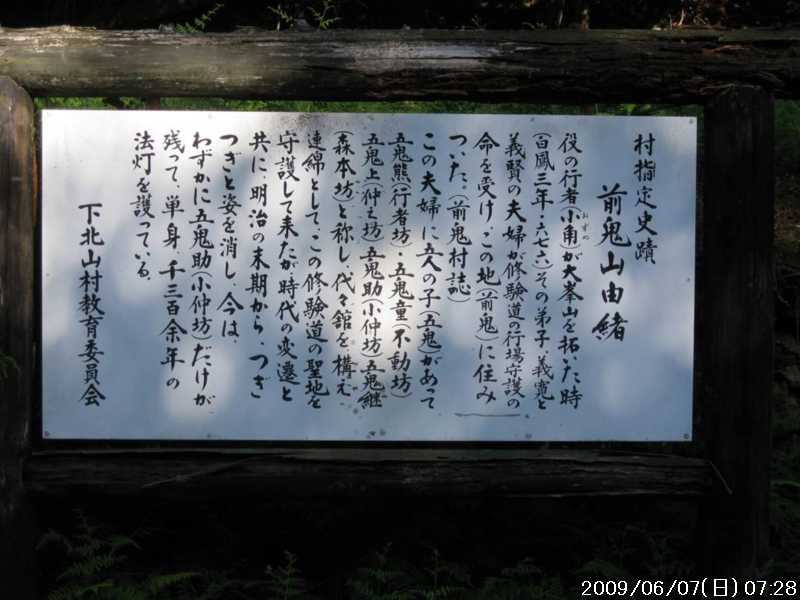 村指定史蹟
前鬼山由緒
役の行者小角が大峯山を拓いた時
おずぬ
(白鳳三年・六七六)その弟子、義寛と
義賢の夫婦が修験道の行場守護の
命を受け、この地(前鬼)に住み
ついた。(前鬼村誌)
この夫婦に五人の子(五鬼)があって
五鬼熊(行者坊)・五鬼童(不動坊)
五鬼上(仲之坊)五鬼助(小仲坊)五鬼継
(森本坊)と称し、代々舘を構え
連綿として、この修験道の聖地を
守護して来たが時代の変遷と
共に、明治の末期から、つぎ
つぎと姿を消し、今は、
わずかに五鬼助(小仲坊)だけが
残って、単身、千三百余年の
法灯を護っている。
下北山村教育委員会
2009/06/07(日) 07:28